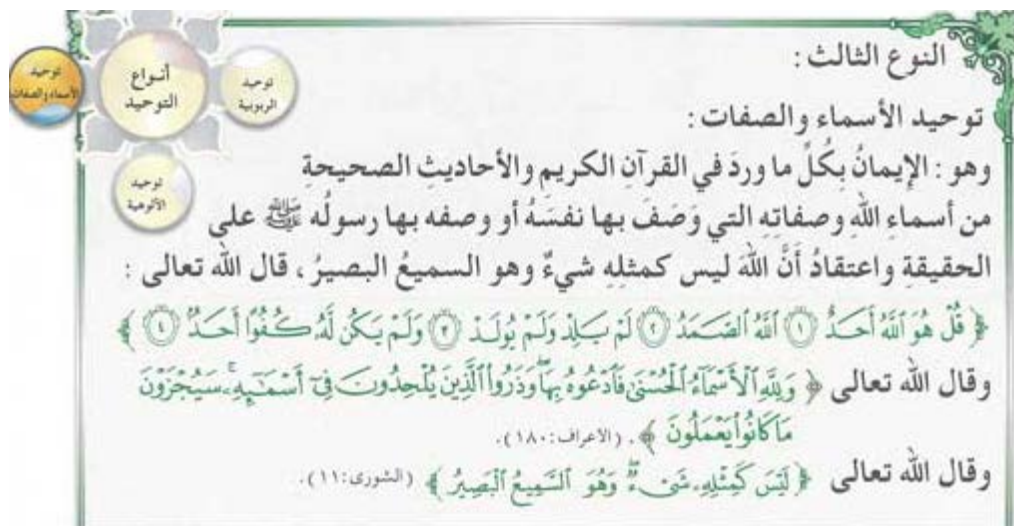 النوع الثالث :
أنواع
التوحيد
توحيد
الربوبية
توحيد
الأسماء والصفات
توحيد
الألوهية
توحيد الأسماء والصفات :
وهو : الإيمانُ بِكُلِّ ما وردَ في القرآنِ الكريمِ والأحاديثِ الصحيحةِ
من أسماءِ اللهِ وصفاتِهِ التي وَصَفَ بها نفسَهُ أو وصفه بها رسولُه ﷺ على
الحقيقةِ واعتقادُ أنَّ اللهَ ليس كمثلِهِ شيءٌ وهو السميعُ البصيرُ ، قال الله تعالى :
﴿ قُلْ هُوَ ٱللَّهُ أَحَدٌ ۝١ ٱللَّهُ ٱلصَّمَدُ ۝٢ لَمْ يَلِدْ وَلَمْ يُولَدْ ۝٣ وَلَمْ يَكُن لَّهُۥ كُفُوًا أَحَدٌۢ ۝٤ ﴾
وقال الله تعالى ﴿ وَلِلَّهِ ٱلْأَسْمَآءُ ٱلْحُسْنَىٰ فَٱدْعُوهُ بِهَا ۖ وَذَرُوا۟ ٱلَّذِينَ يُلْحِدُونَ فِىٓ أَسْمَٰٓئِهِۦ ۚ سَيُجْزَوْنَ
مَا كَانُوا۟ يَعْمَلُونَ ﴾ . (الاعراف:١٨٠).
وقال الله تعالى ﴿ لَيْسَ كَمِثْلِهِۦ شَىْءٌ ۖ وَهُوَ ٱلسَّمِيعُ ٱلْبَصِيرُ ﴾ (الشورى:١١).